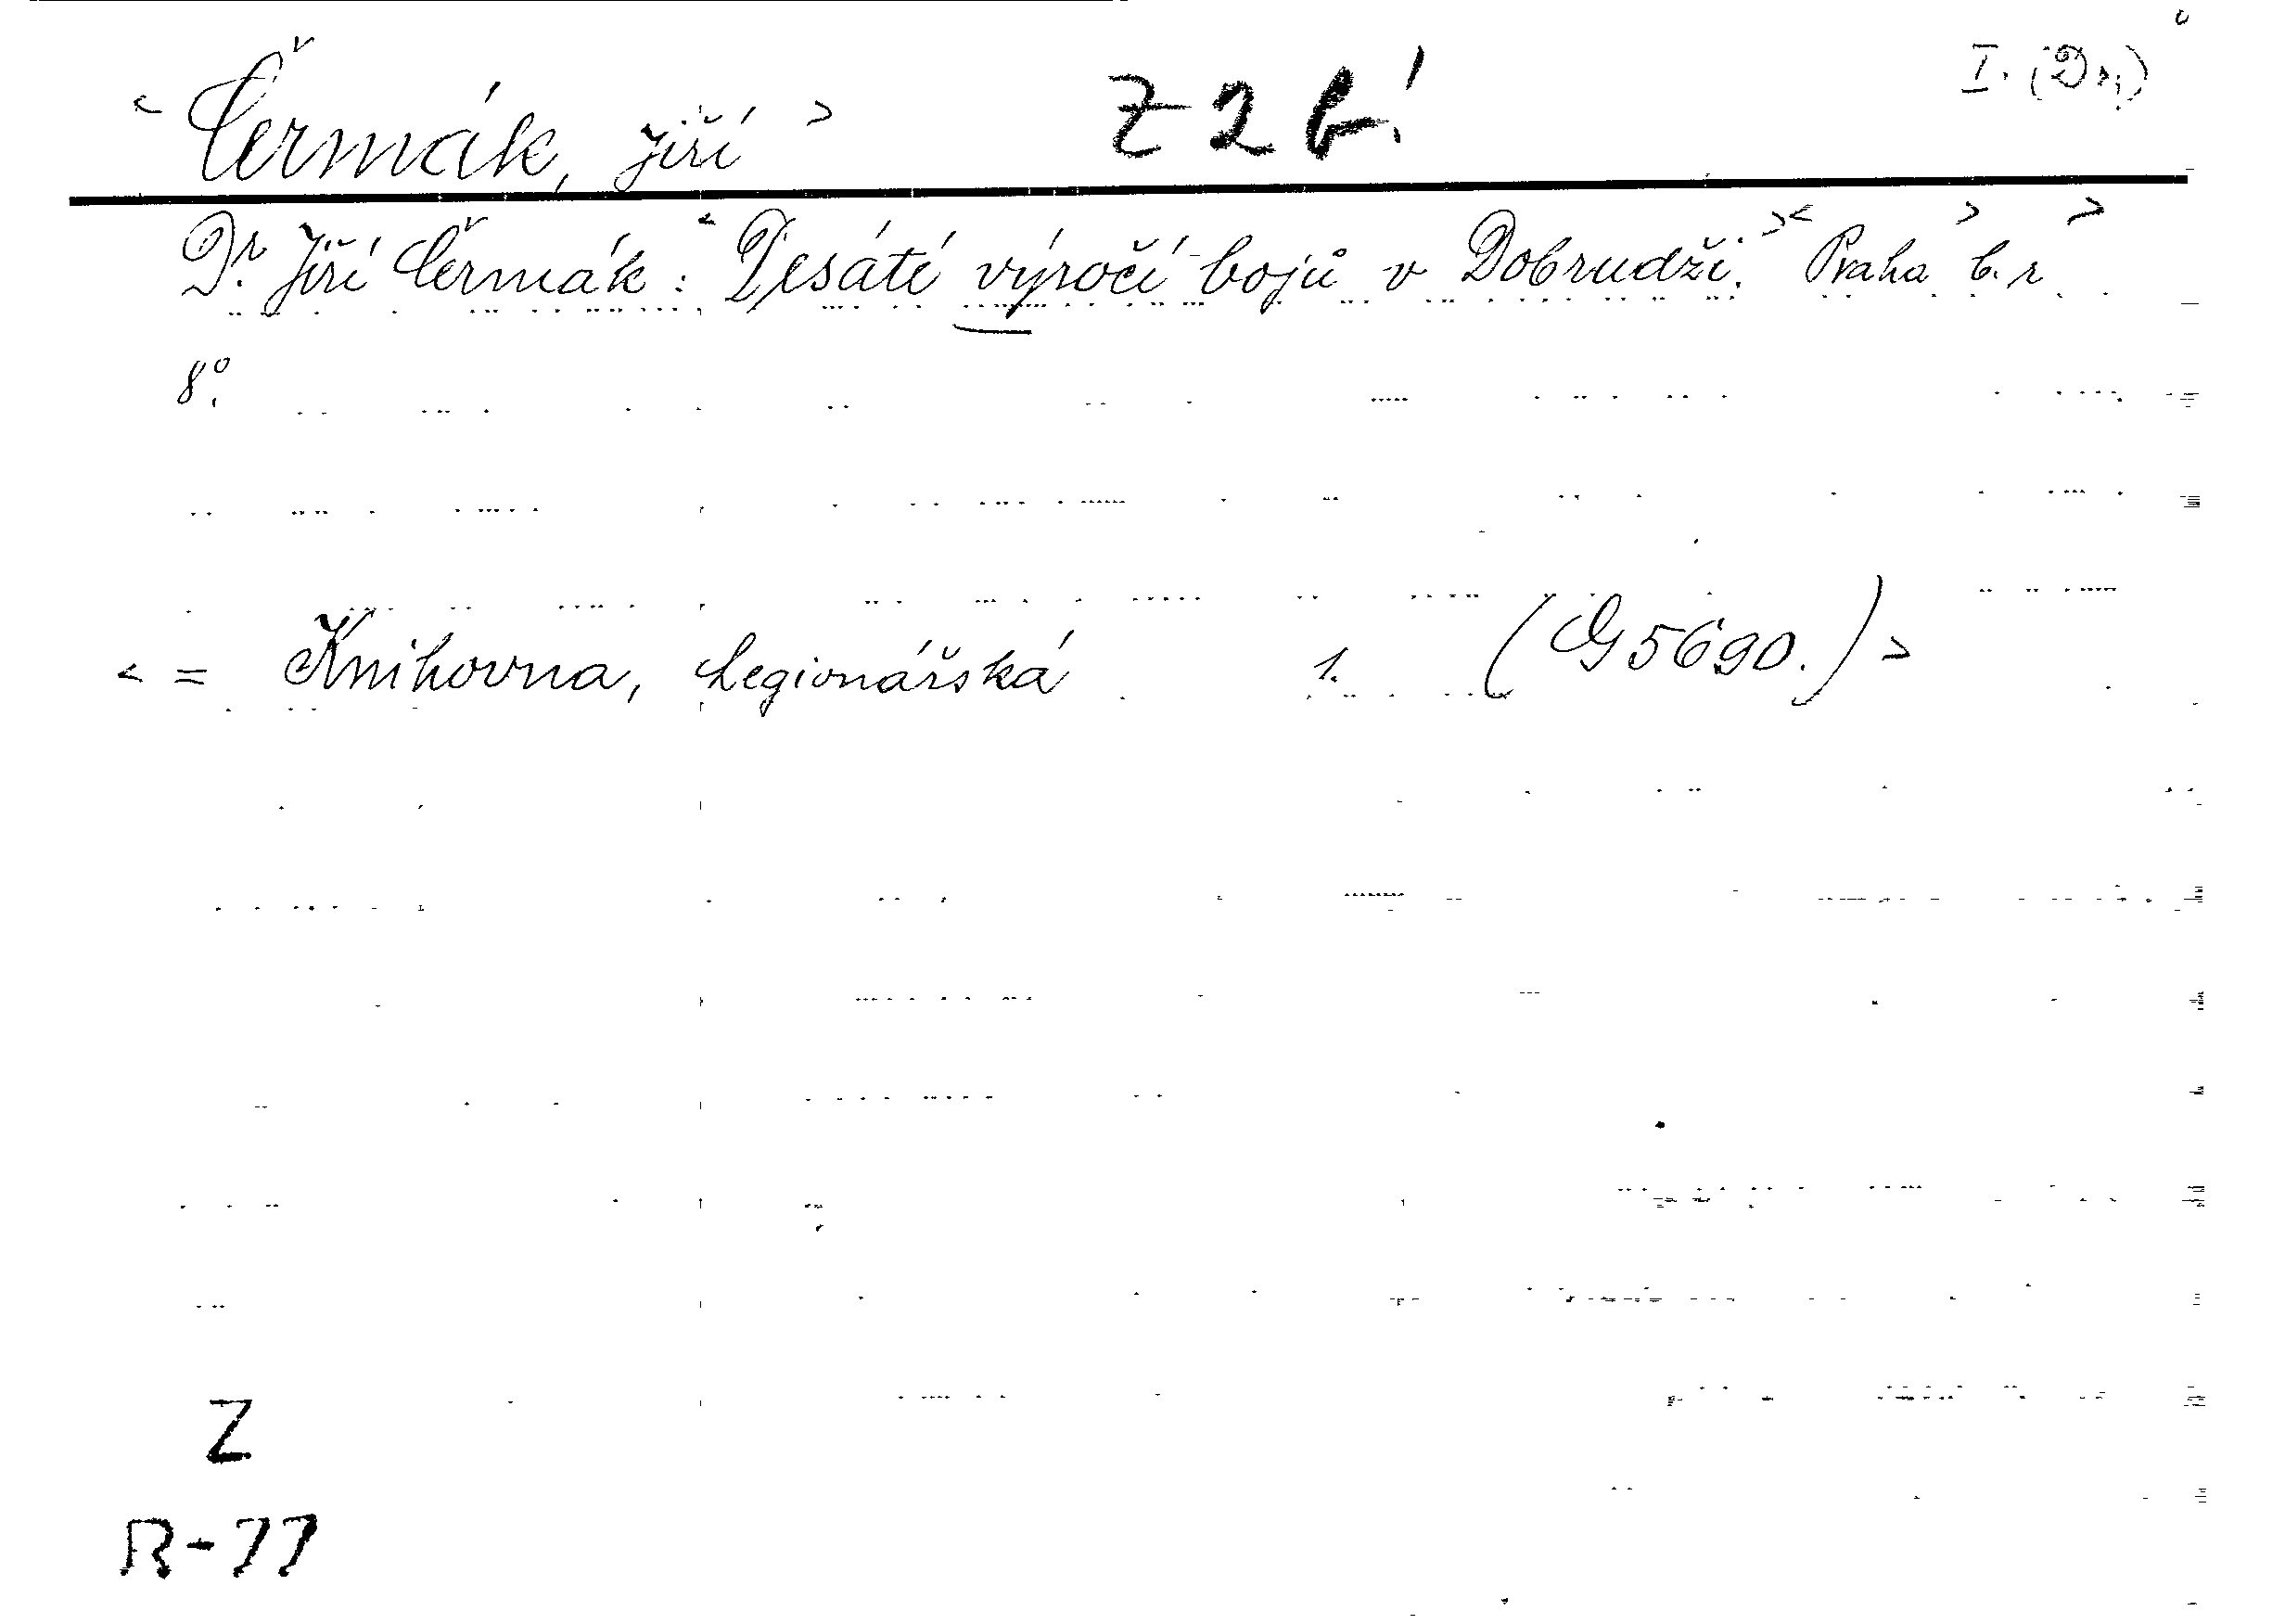 < Čermák, Jiří > Z 2 b! I. (Dr,)
Dr. Jiří Čermák: < Desáté výročí bojů v Dobrudži. > < Praha > b. r >
8°.
< = Knihovna, Legionářská 1. (G 5690.) >
Z
R-77